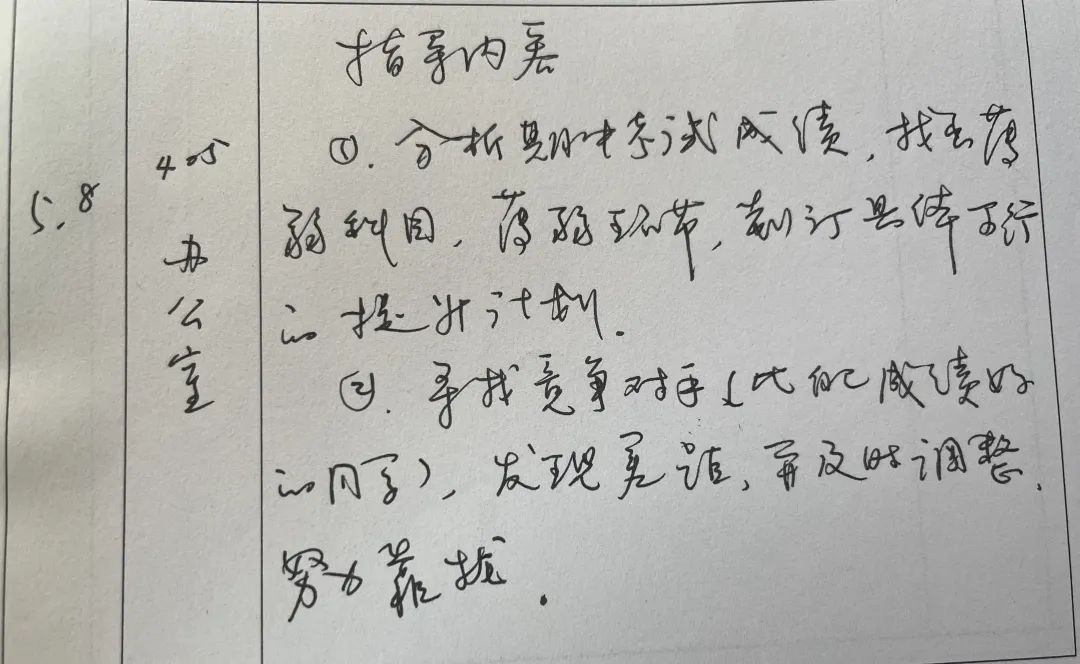 5.8
405
办
公
室
指导内容
①. 分析期中考试成绩, 找出薄
弱科目, 薄弱环节, 制订具体可行
的提升计划.
②. 寻找竞争对手(比自己成绩好
的同学), 发现差距, 并及时调整,
努力靠拢.